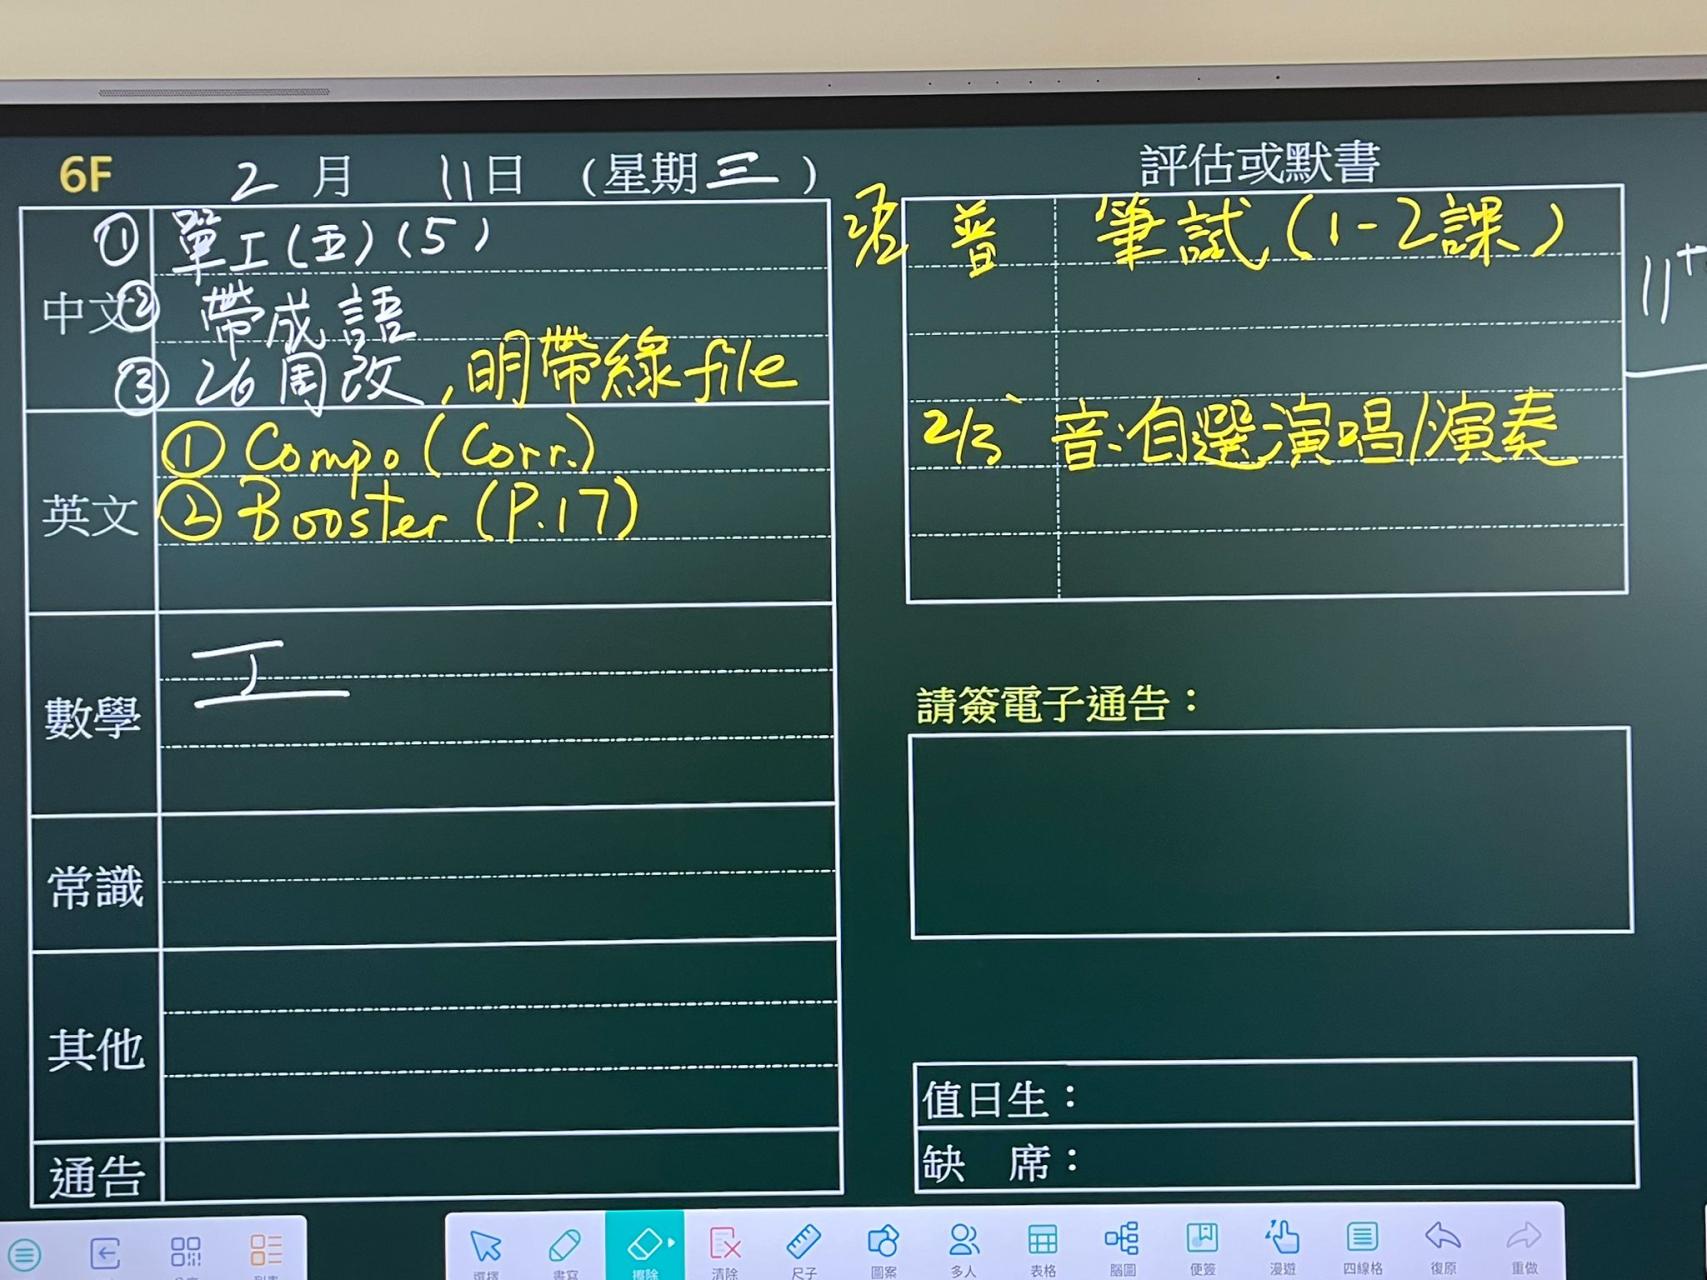 6F 2月 11日 (星期三)
中文
① 單工(五)(5)
② 帶成語
③ 26周改,明帶綠file
英文
① Compo (Corr.)
② Booster (P.17)
數學
工
常識
其他
通告
評估或默書
普 筆試(1-2課)
2/3 音:自選演唱/演奏
11+
請簽電子通告:
值日生:
缺 席:
選擇
書寫
擦除
清除
尺子
圖案
多人
表格
腦圖
便簽
漫遊
四線格
復原
重做